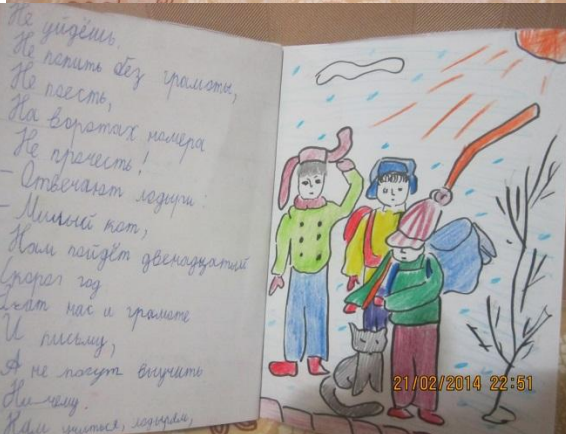 Не уйдёшь.
Не попить без грамоты,
Не поесть,
На воротах номера
Не прочесть!
- Отвечают лодыри:
- Милый кот,
Нам пойдёт двенадцатый
Скоро год
Учат нас и грамоте
И письму,
А не могут выучить
Ничему.
Нам учиться, лодырям,
21/02/2014 22:51